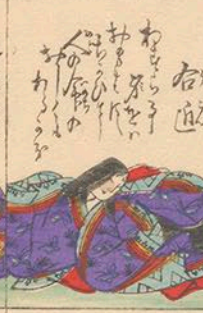 右近
わすらるゝ
身をは
おもはす
ちかひてし
人の命の
おしくも
あるかな